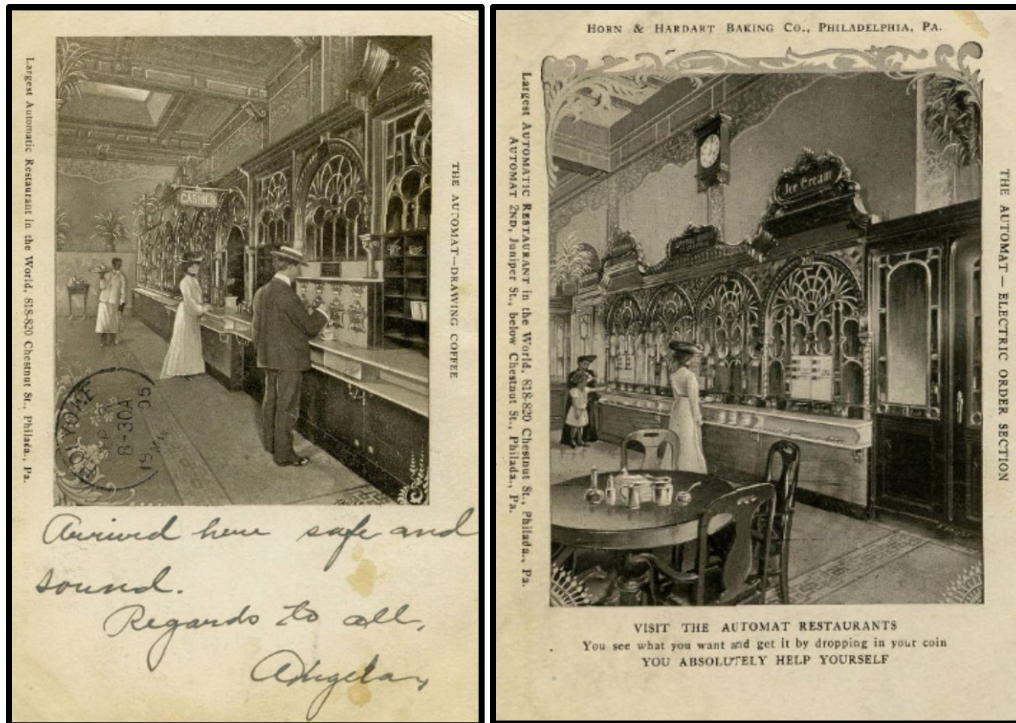 Largest Automatic Restaurant in the World, 818-820 Chestnut St., Philada., Pa.
CASHIER
THE AUTOMAT—DRAWING COFFEE
HOLYOKE
8-30A
19
05
Arrived here safe and
sound.
Regards to all,
Angela,
HORN & HARDART BAKING CO., PHILADELPHIA, PA.
Largest AUTOMATIC RESTAURANT in the World, 818-820 Chestnut St., Philada., Pa.
AUTOMAT 2ND, Juniper St., below Chestnut St., Philada., Pa.
Ice Cream
THE AUTOMAT — ELECTRIC ORDER SECTION
VISIT THE AUTOMAT RESTAURANTS
You see what you want and get it by dropping in your coin
YOU ABSOLUTELY HELP YOURSELF